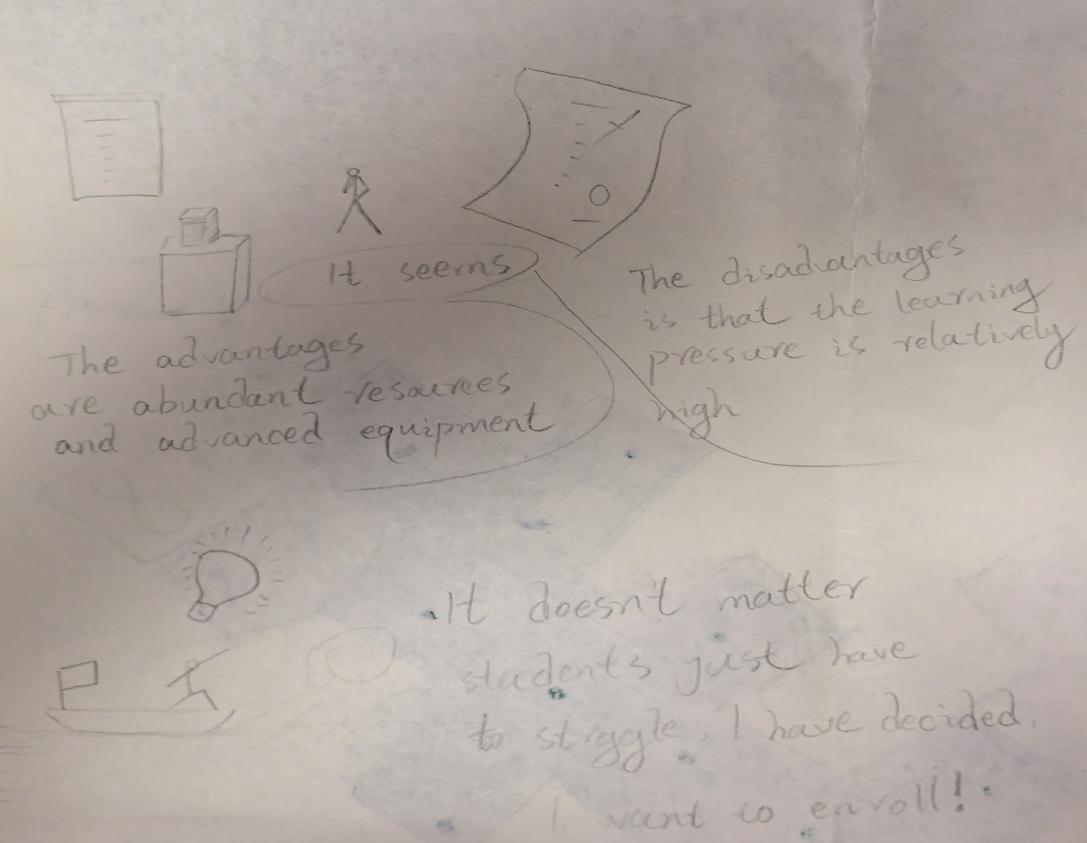 It seems
The advantages
are abundant resources
and advanced equipment
The disadvantages
is that the learning
pressure is relatively
high
It doesn't matter
students just have
to strggle, I have decided.
I want to enroll!